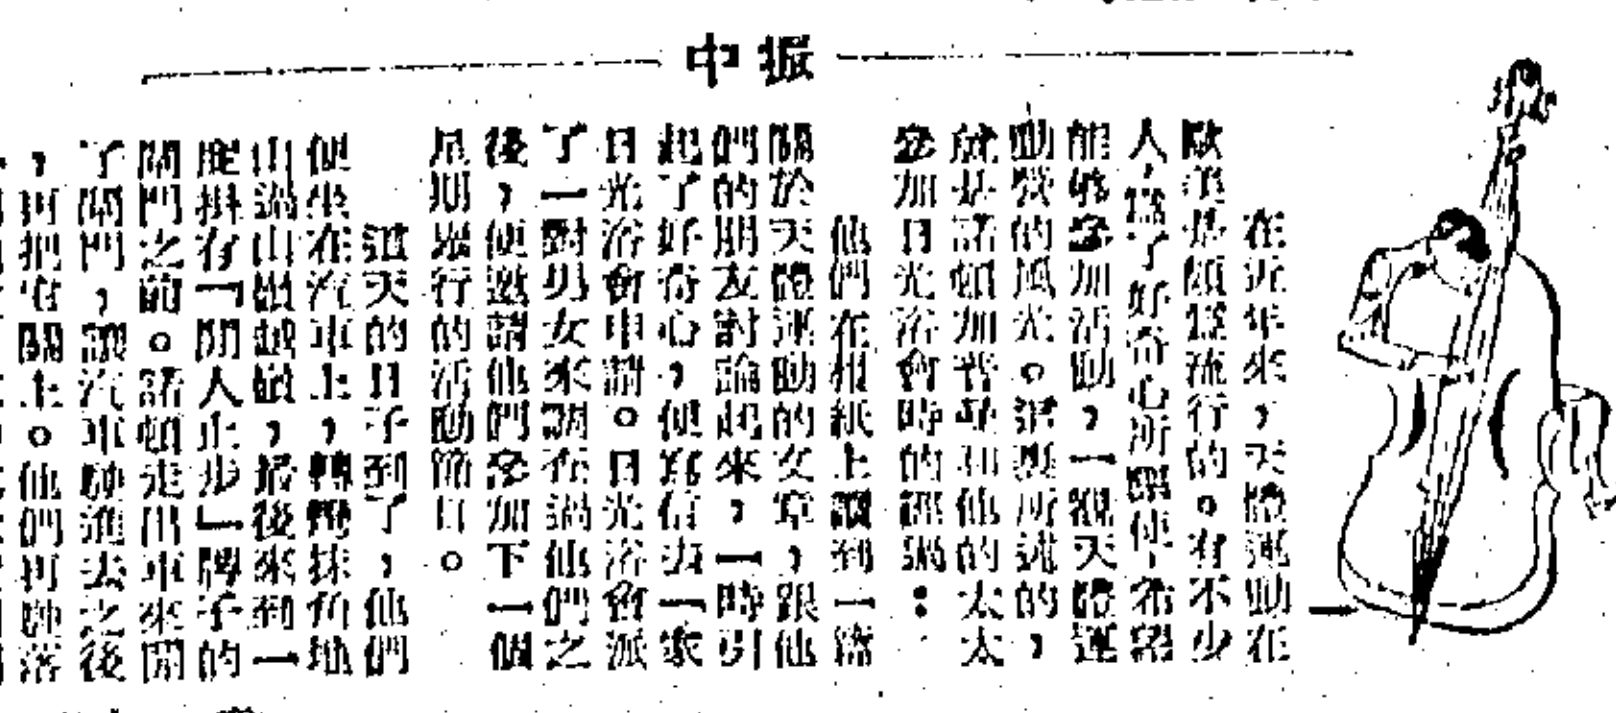 中振
在近年來，天體運動在
歐美是頗爲流行的。有不少
人爲了好奇心所驅使，希望
能够參加活動，一視天體運
動營的風光。這裏所述的，
就是諾頓加普萊和他的太太
參加日光浴會時的經過：
他們在報紙上讀到一篇
關於天體運動的文章，跟他
們的朋友討論起來，一時引
起了好奇心，便寫信去一家
日光浴會申請。日光浴會派
了一對男女來調查過他們之
後，便邀請他們參加下一個
星期舉行的活動節目。
這天的日子到了，他們
便坐在汽車上，轉彎抹角地
山過山嶺越嶺，最後來到一
處掛有「閒人止步」牌子的
閘門之前。諾頓走出車來開
了閘門，讓汽車駛進去之後
，再把它關上。他們再駛落